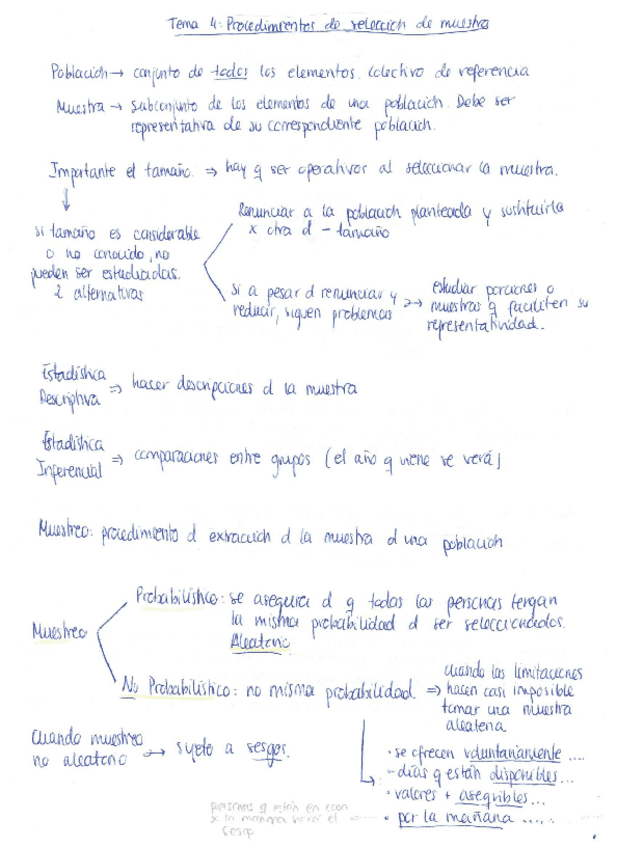 Tema 4: Procedimientos de selección de muestra
Población → conjunto de todos los elementos. Colectivo de referencia
Muestra → Subconjunto de los elementos de una población. Debe ser
representativa de su correspondiente población.
Importante el tamaño. ⇒ hay q ser operativos al seleccionar la muestra.
si tamaño es considerable
o no conocido, no
pueden ser estudiadas.
2 alternativas
Renunciar a la población planteada y sustituirla
x otra d - tamaño
si a pesar d renunciar y
reducir, siguen problemas
→ estudiar porciones o
muestras q faciliten su
representatividad.
Estadística
Descriptiva ⇒ hacer descripciones d la muestra
Estadística
Inferencial ⇒ comparaciones entre grupos (el año q viene se verá)
Muestreo: procedimiento d extracción d la muestra d una población
Muestreo
Probabilístico: se asegura d q todas las personas tengan
la misma probabilidad d ser seleccionados.
Aleatorio
No Probabilístico: no misma probabilidad. ⇒
cuando las limitaciones
hacen casi imposible
tomar una muestra
aleatoria
cuando muestreo
no aleatorio → sujeto a sesgos.
· se ofrecen voluntariamente ....
- días q están disponibles...
· valores + asequibles...
· por la mañana .....
personas q están en
x la mañana
sesgo